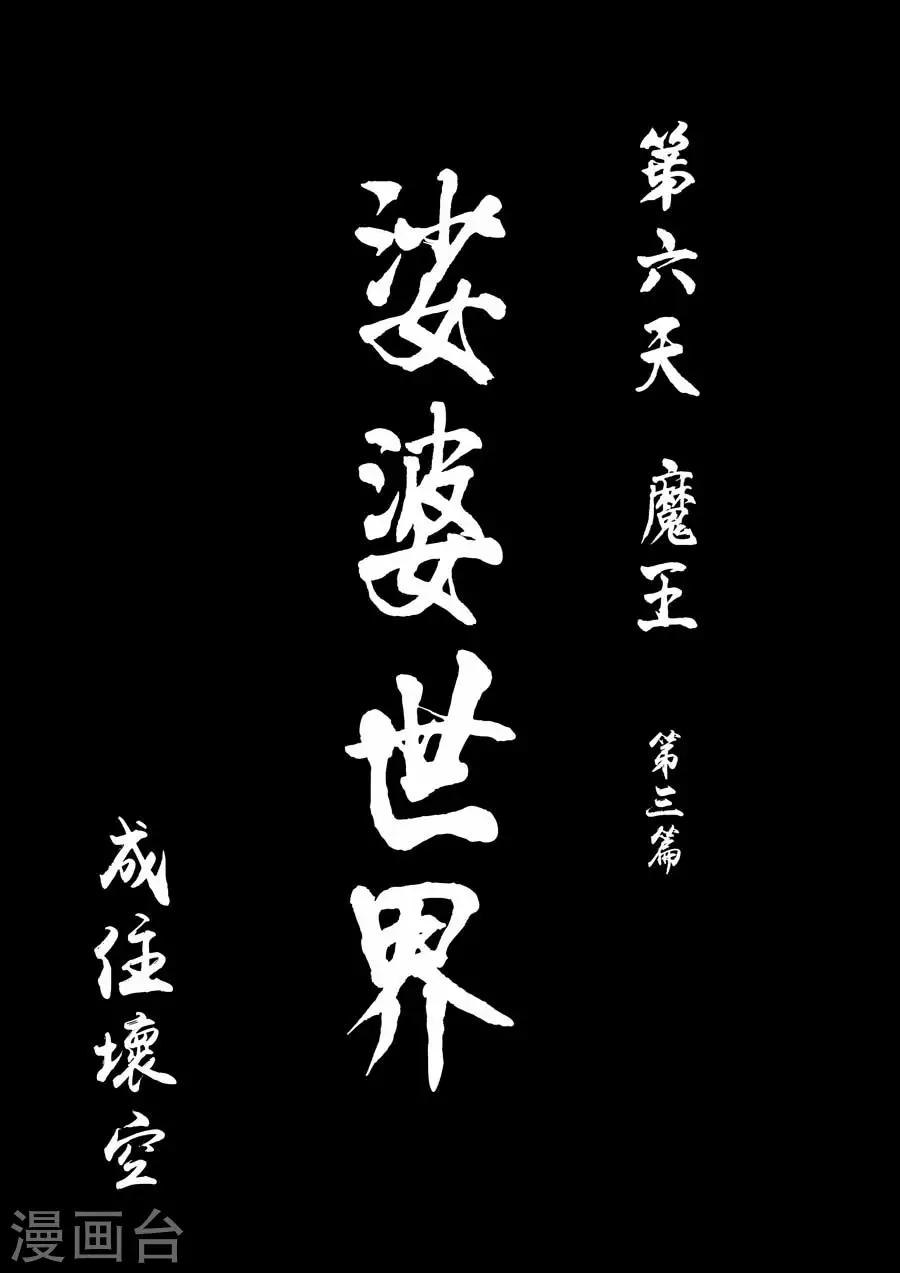 第六天 魔王 第三篇
娑婆世界
成住壞空
漫画台